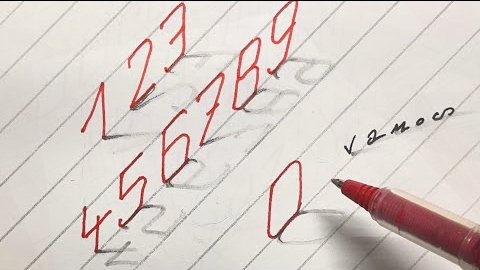 123
456789
0
vamos